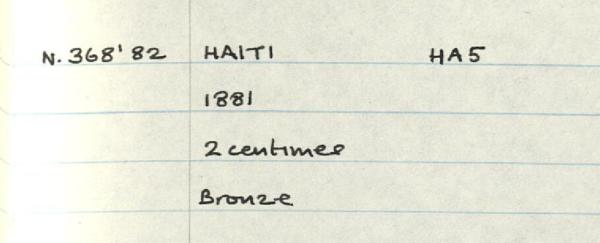 N. 368'82 HAITI HA5
1881
2 centimes
Bronze